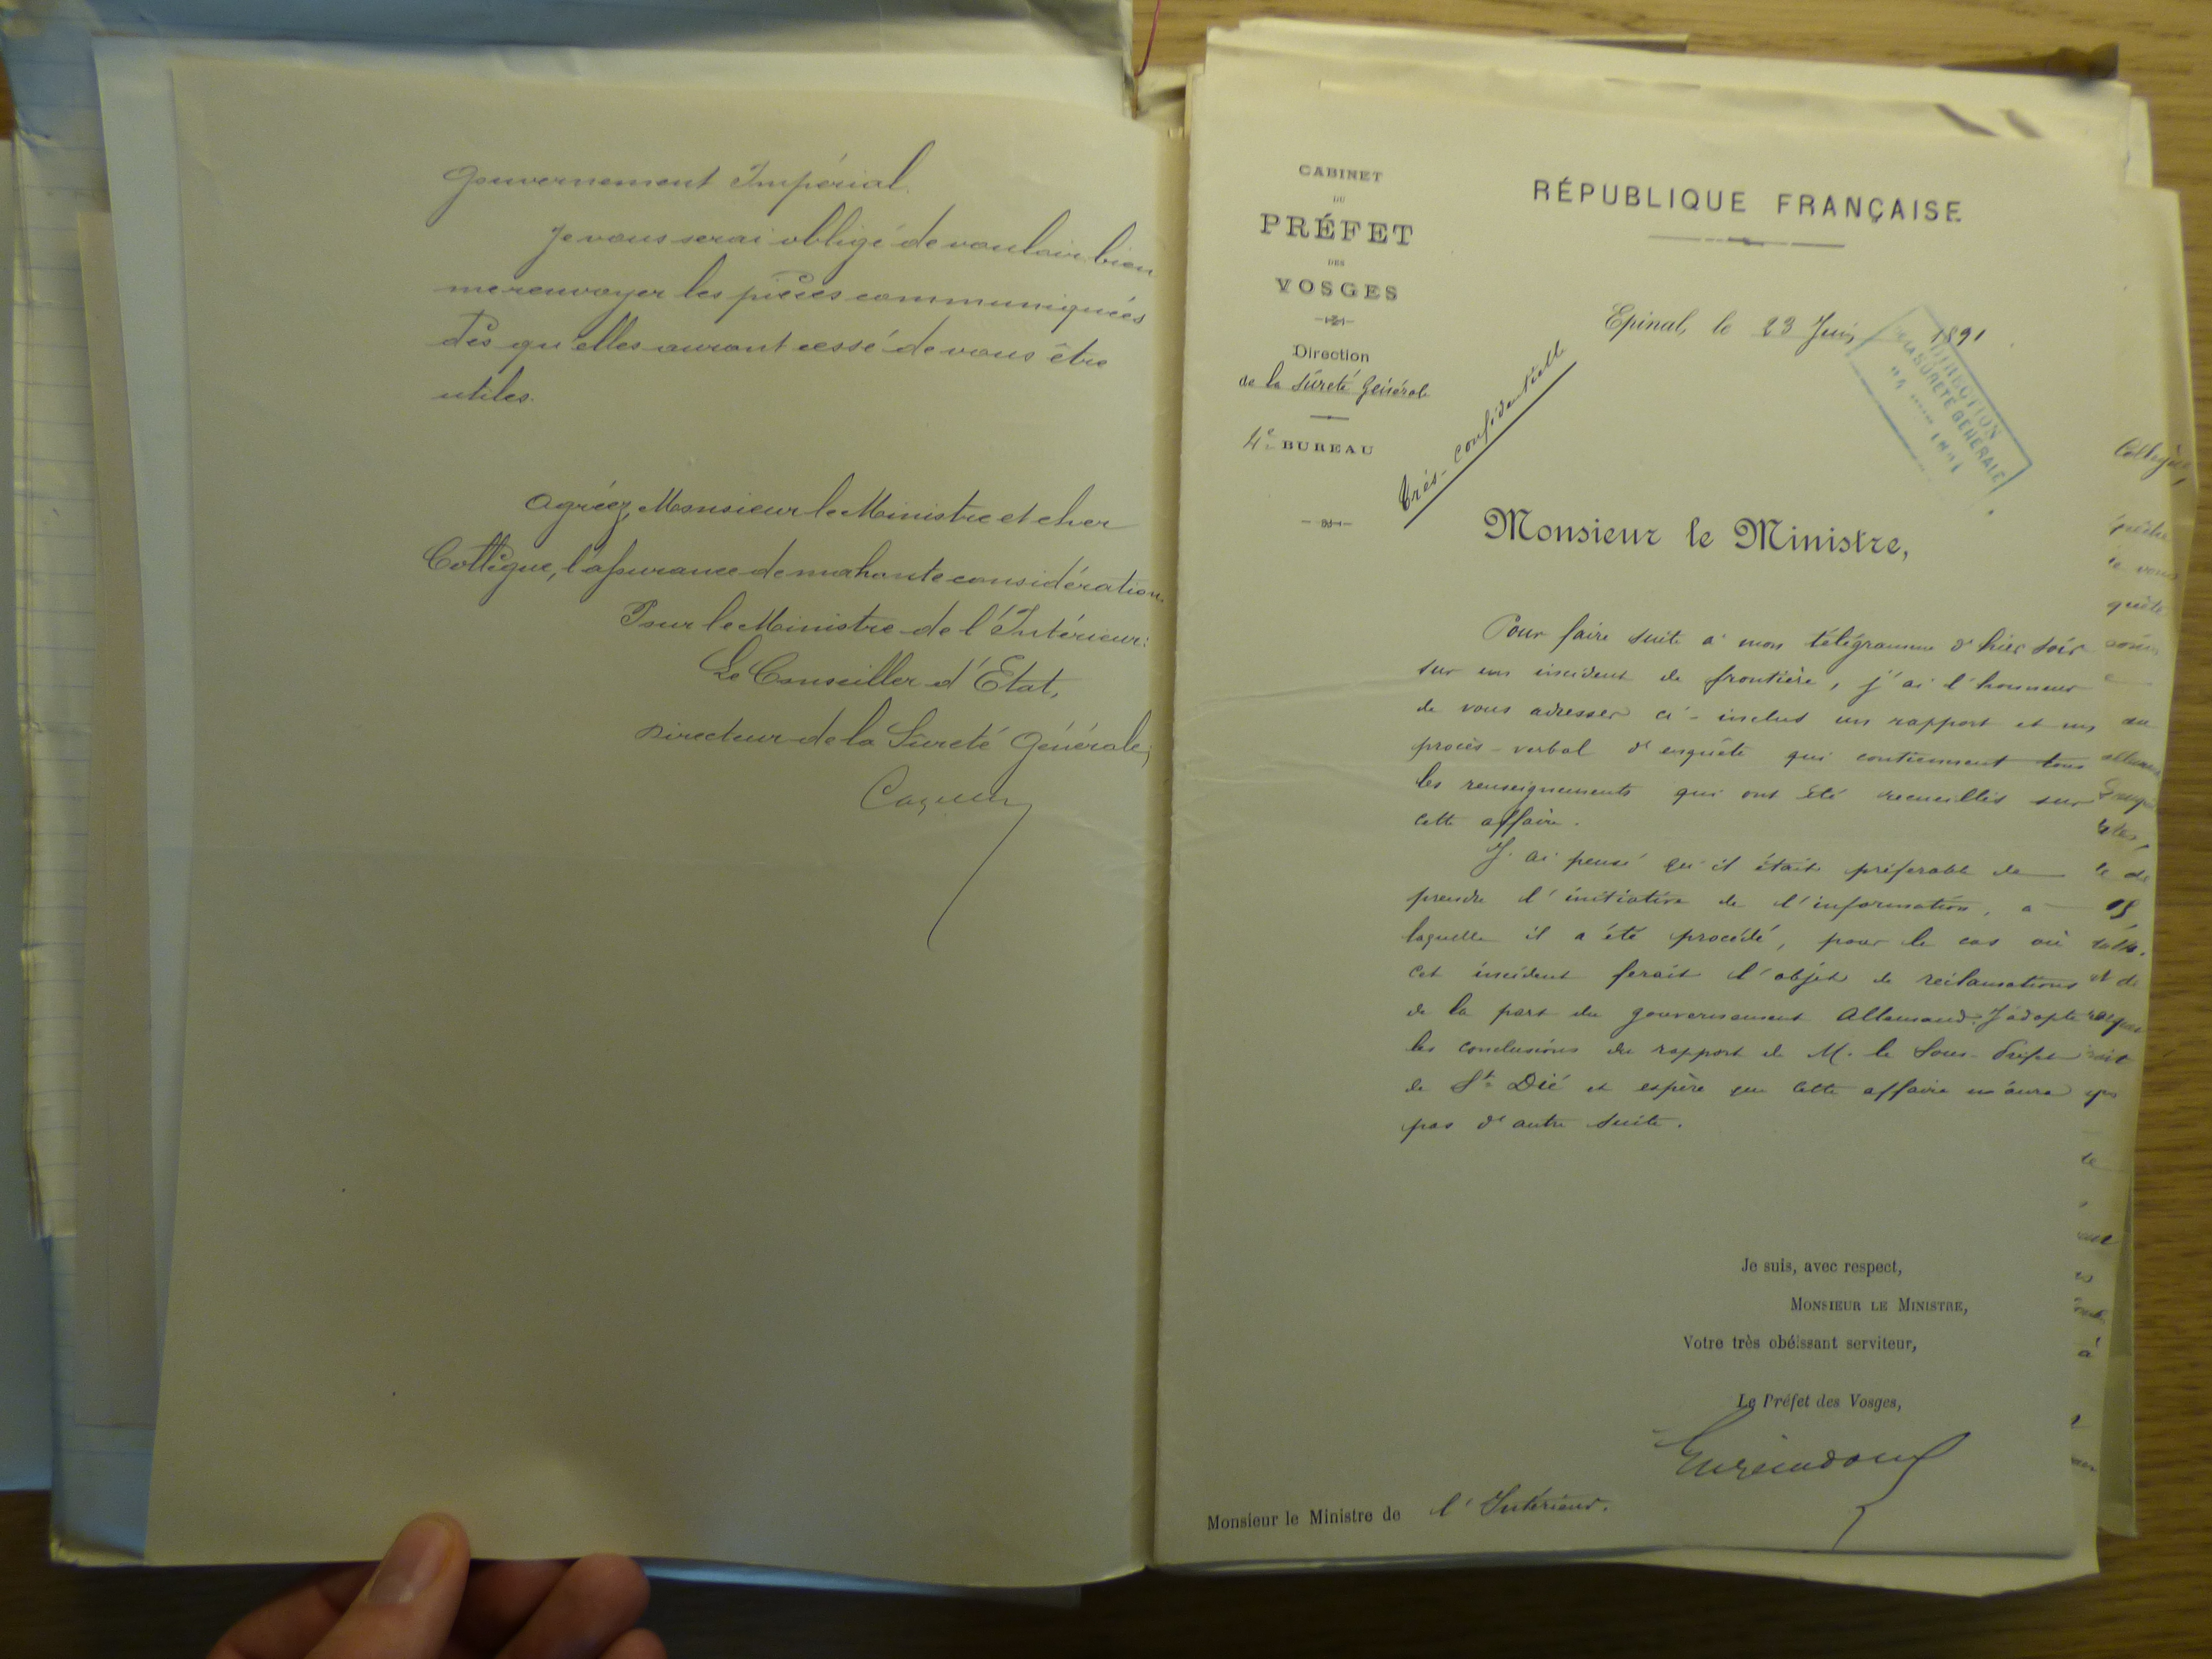 Gouvernement Impérial.
Je vous serai obligé de vouloir bien
me renvoyer les pièces communiquées
dès qu'elles auront cessé de vous être
utiles.
Agréez, Monsieur le Ministre et cher
Collègue, l'assurance de ma haute considération.
Pour le Ministre de l'Intérieur:
Le Conseiller d'Etat,
Directeur de la Sûreté Générale,
CABINET
DU
PRÉFET
DES
VOSGES
Direction
de la Sûreté Générale
4e BUREAU
RÉPUBLIQUE FRANÇAISE
Epinal, le 23 Juin 1891
DIRECTION
DE LA SURETÉ GÉNÉRALE
1891
Très-confidentielle
Monsieur le Ministre,
Pour faire suite à mon télégramme d'hier soir
sur un incident de frontière, j'ai l'honneur
de vous adresser ci-inclus un rapport et un
procès-verbal d'enquête qui contiennent tous
les renseignements qui ont été recueillis sur
cette affaire.
J'ai pensé qu'il était préférable de
prendre l'initiative de l'information, à
laquelle il a été procédé, pour le cas où
cet incident ferait l'objet de réclamations
de la part du gouvernement Allemand. J'adopte
les conclusions du rapport de M. le Sous-Préfet
de St Dié et espère que cette affaire n'aura
pas d'autre suite.
Je suis, avec respect,
MONSIEUR LE MINISTRE,
Votre très obéissant serviteur,
Le Préfet des Vosges,
Monsieur le Ministre de l'Intérieur.
Collègue,